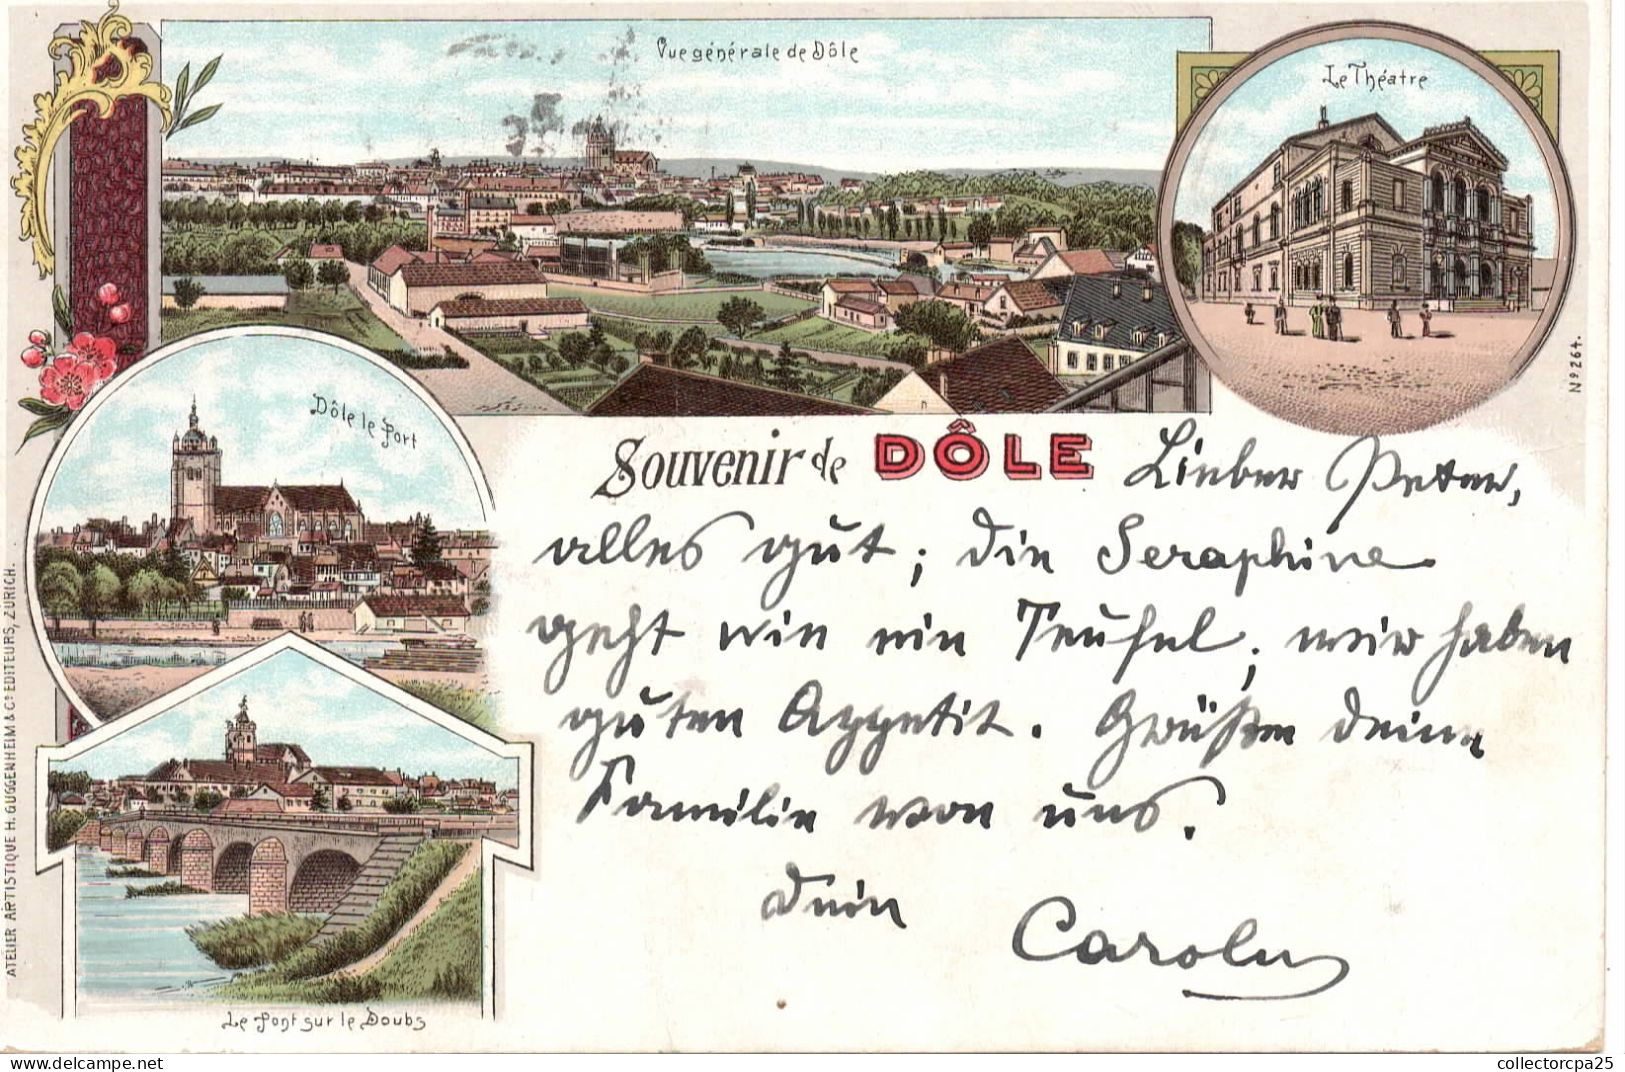 Vue générale de Dôle
Le Théatre
Nº 264.
Dôle le Port
Souvenir de DÔLE
Lieber Peter,
alles gut; die Seraphine
geht wie ein Teufel; wir haben
guten Appetit. Grüßen deine
Familie von uns.
Dein
Carolus
Le Pont sur le Doubs
ATELIER ARTISTIQUE H. GUGGENHEIM & Cº EDITEURS, ZURICH.
collectorcpa25